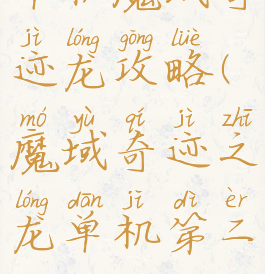 jì lóng gōng lüè
迹龙攻略(
mó yù qí jì zhī
魔域奇迹之
lóng dān jī dì èr
龙单机第二